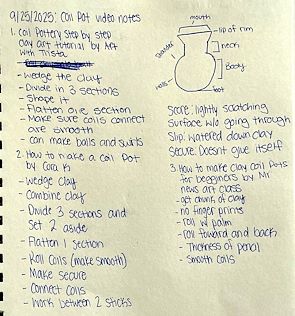 9/25/2025: Coil Pot video notes
1. Coil Pottery Step by Step
Clay art tutorial by Art
with Trista
- Wedge the clay
- Divide in 3 sections
- Shape it
- Flatten one section
- Make sure coils connect
are smooth
- can make balls and swirls
2. How to make a Coil Pot
by Cara K
- Wedge clay
- Combine clay
- Divide 3 sections and
Set 2 aside
- Flatten 1 section
- Roll Coils (make smooth)
- Make secure
- Connect Coils
- Work between 2 sticks
mouth
lip of rim
neck
Shoulder
Body
foot
Score: lightly scratching
Surface w/o going through
Slip: watered down clay
Secure: Doesnt glue itself
3. How to make clay coil pots
for beginners by Mr
news art class
- get chunk of clay
- no finger prints
- roll w/ palm
- roll toward and back
- Thickness of pencil
- Smooth coils